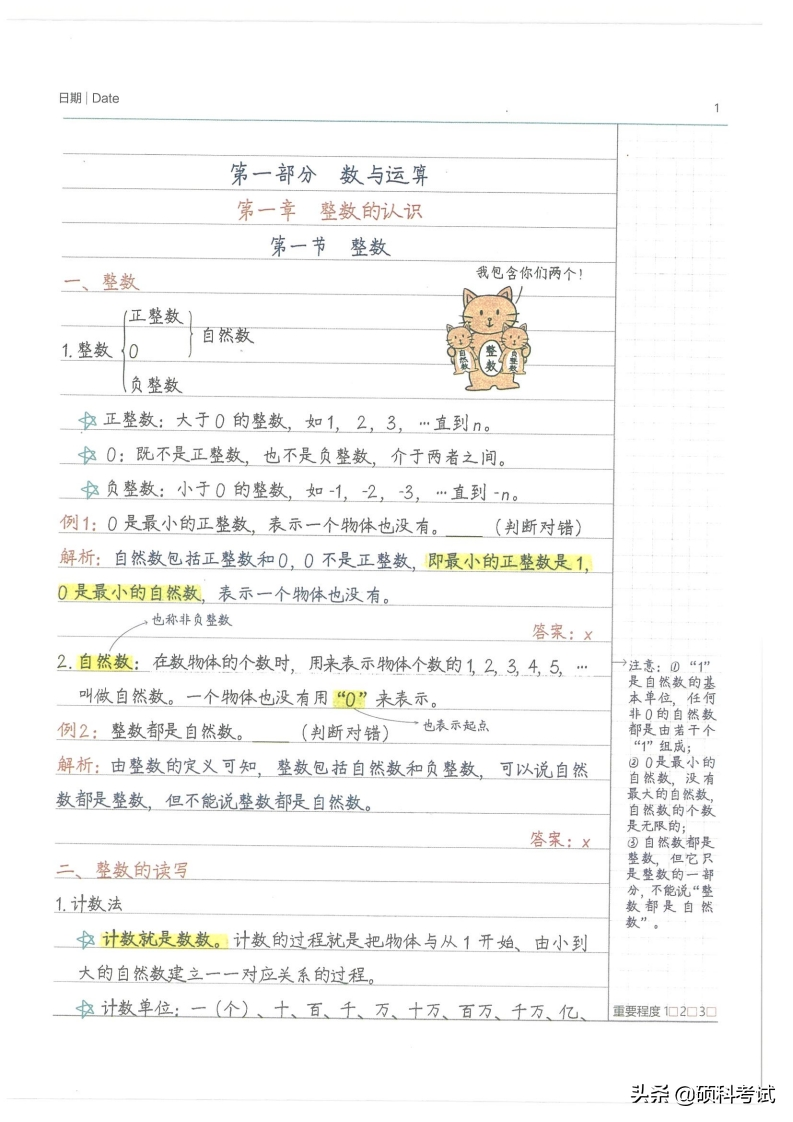 日期 | Date
1
第一部分 数与运算
第一章 整数的认识
第一节 整数
一、整数
我包含你们两个!
正整数
1.整数 0 自然数
负整数
自然数
整数
负整数
正整数:大于0的整数,如1,2,3,…直到n。
0:既不是正整数,也不是负整数,介于两者之间。
负整数:小于0的整数,如-1,-2,-3,…直到-n。
例1:0是最小的正整数,表示一个物体也没有。____(判断对错)
解析:自然数包括正整数和0,0不是正整数,即最小的正整数是1,
0是最小的自然数,表示一个物体也没有。
也称非负整数
答案:x
2.自然数:在数物体的个数时,用来表示物体个数的1,2,3,4,5,…
叫做自然数。一个物体也没有用“0”来表示。
也表示起点
例2:整数都是自然数。____(判断对错)
解析:由整数的定义可知,整数包括自然数和负整数,可以说自然
数都是整数,但不能说整数都是自然数。
答案:x
二、整数的读写
1.计数法
计数就是数数。计数的过程就是把物体与从1开始、由小到
大的自然数建立一一对应关系的过程。
计数单位:一(个)、十、百、千、万、十万、百万、千万、亿、
注意:①“1”
是自然数的基
本单位,任何
非0的自然数
都是由若干个
“1”组成;
②0是最小的
自然数,没有
最大的自然数,
自然数的个数
是无限的;
③自然数都是
整数,但它只
是整数的一部
分,不能说“整
数都是自然
数”。
重要程度 1□2□3□
头条 @硕科考试